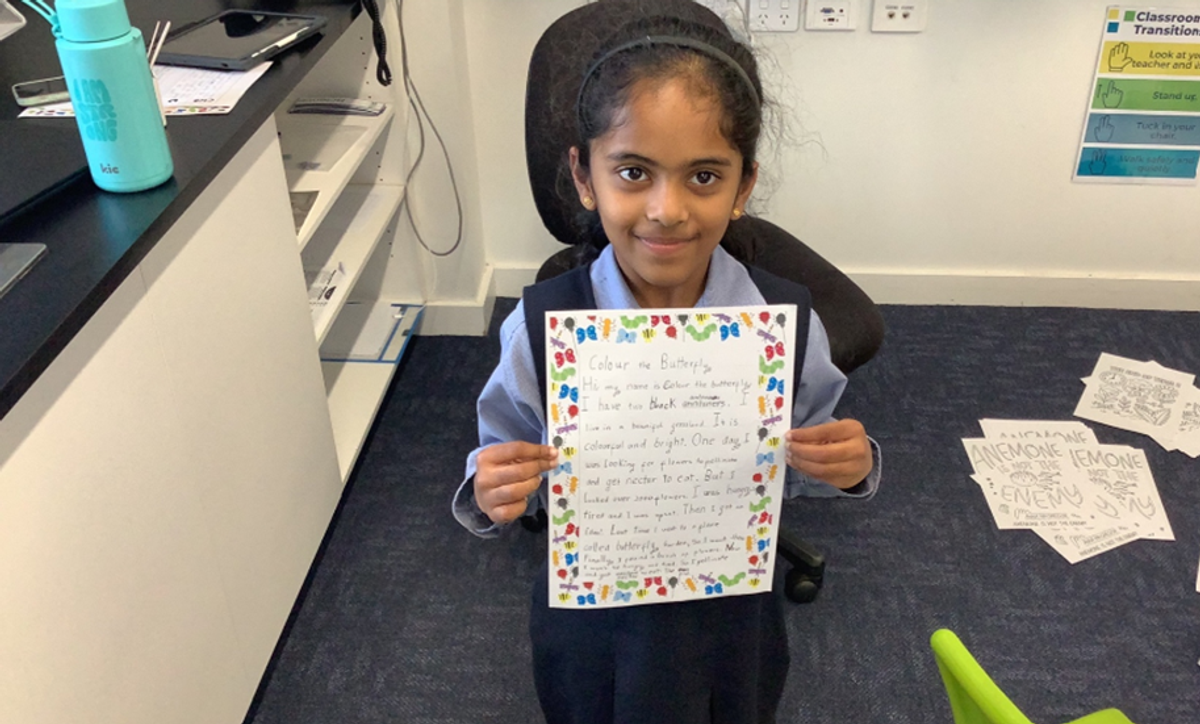 I AM
STRONG
kic
Classroom
Transitions
Look at yo
teacher and w
Stand up
Tuck in your
chair
Walk safely and
Colour the Butterfly
Hi my name is Colour the butterfly
I have two black I
live in a beautiful grassland. It is
colourful and bright. One day I
was looking for flowers to pollinate
and get nectar to eat. But I
looked over flowers. I was hungry
tired and I was upset. Then I got an
idea! Last time I went to a place
called butterfly So I went there
Finally I found a bunch of flowers. Now
I wasn't hungry and tired. So I pollinate
and got
ANEMONE
IS NOT THE
ENEMY
ANEMONE IS NOT THE ENEMY
EMONE
NOT THE
ANEMONE IS NOT THE ENEMY